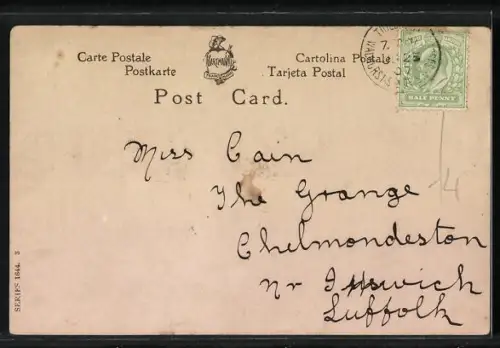 Carte Postale
Postkarte
Cartolina Postale
Tarjeta Postal
Post Card.
HALF PENNY
Miss Cain
The Grange
Chelmondeston
Nr Ipswich
Suffolk
SERIES 1844. 3